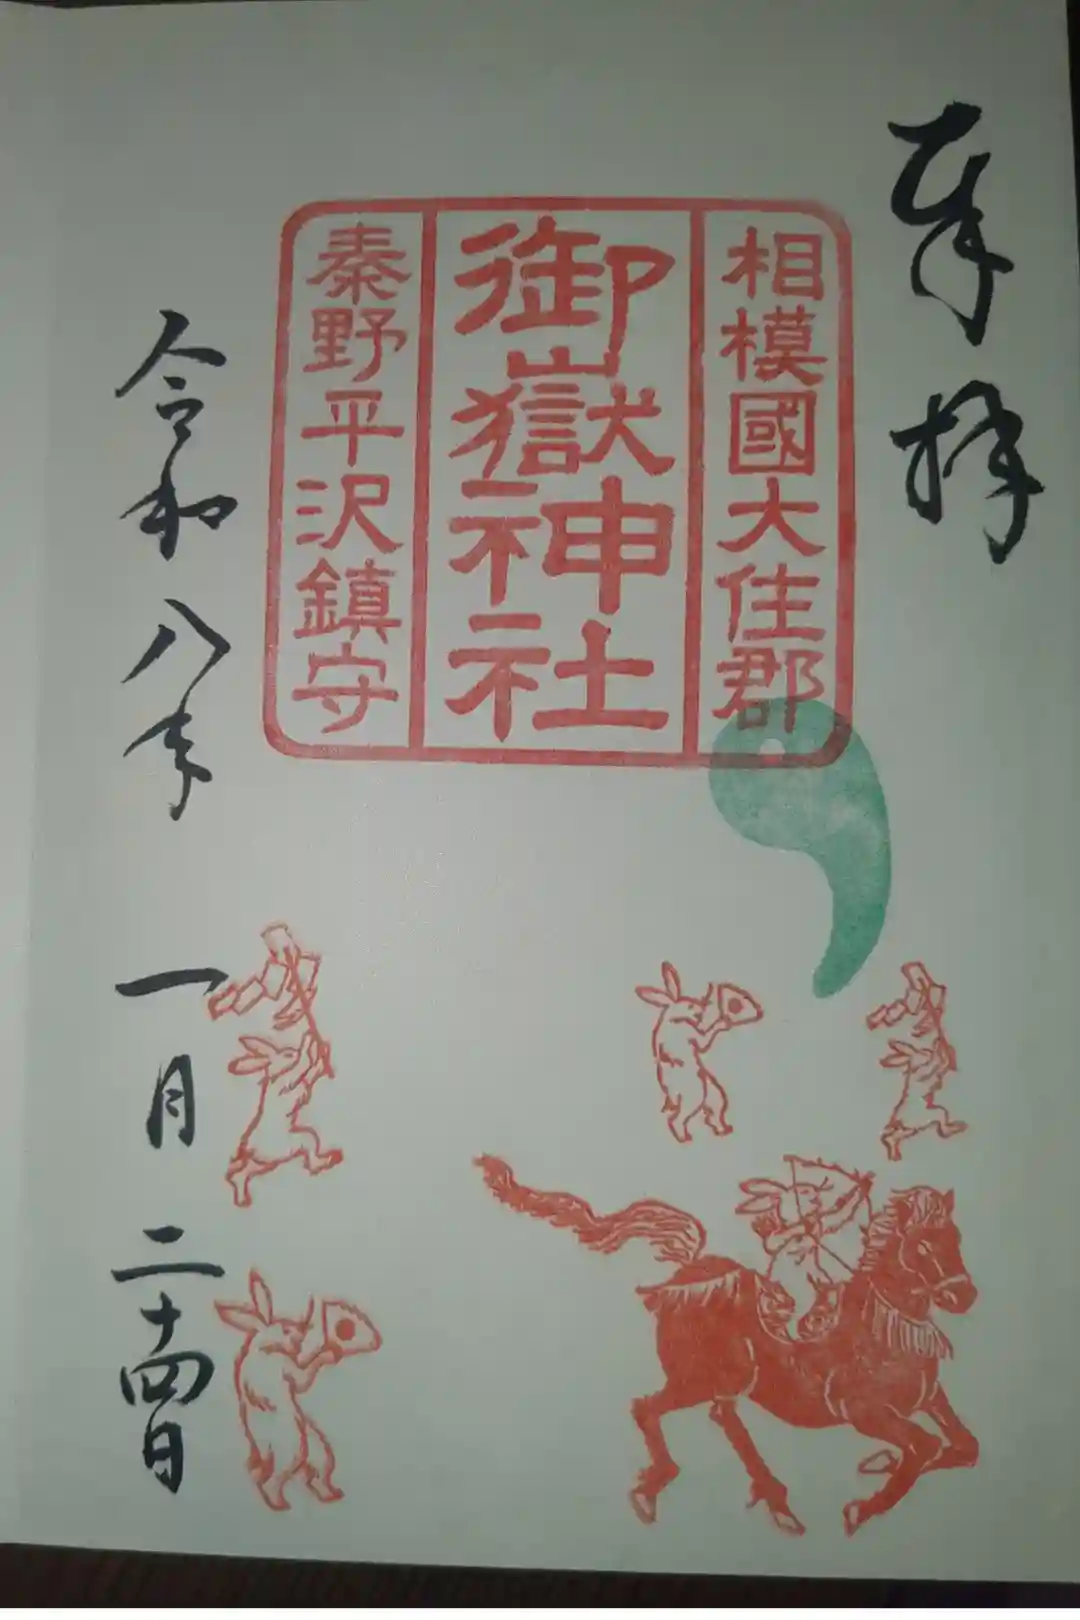 奉拝
相模國大住郡
御嶽神社
秦野平沢鎮守
令和八年
一月二十四日